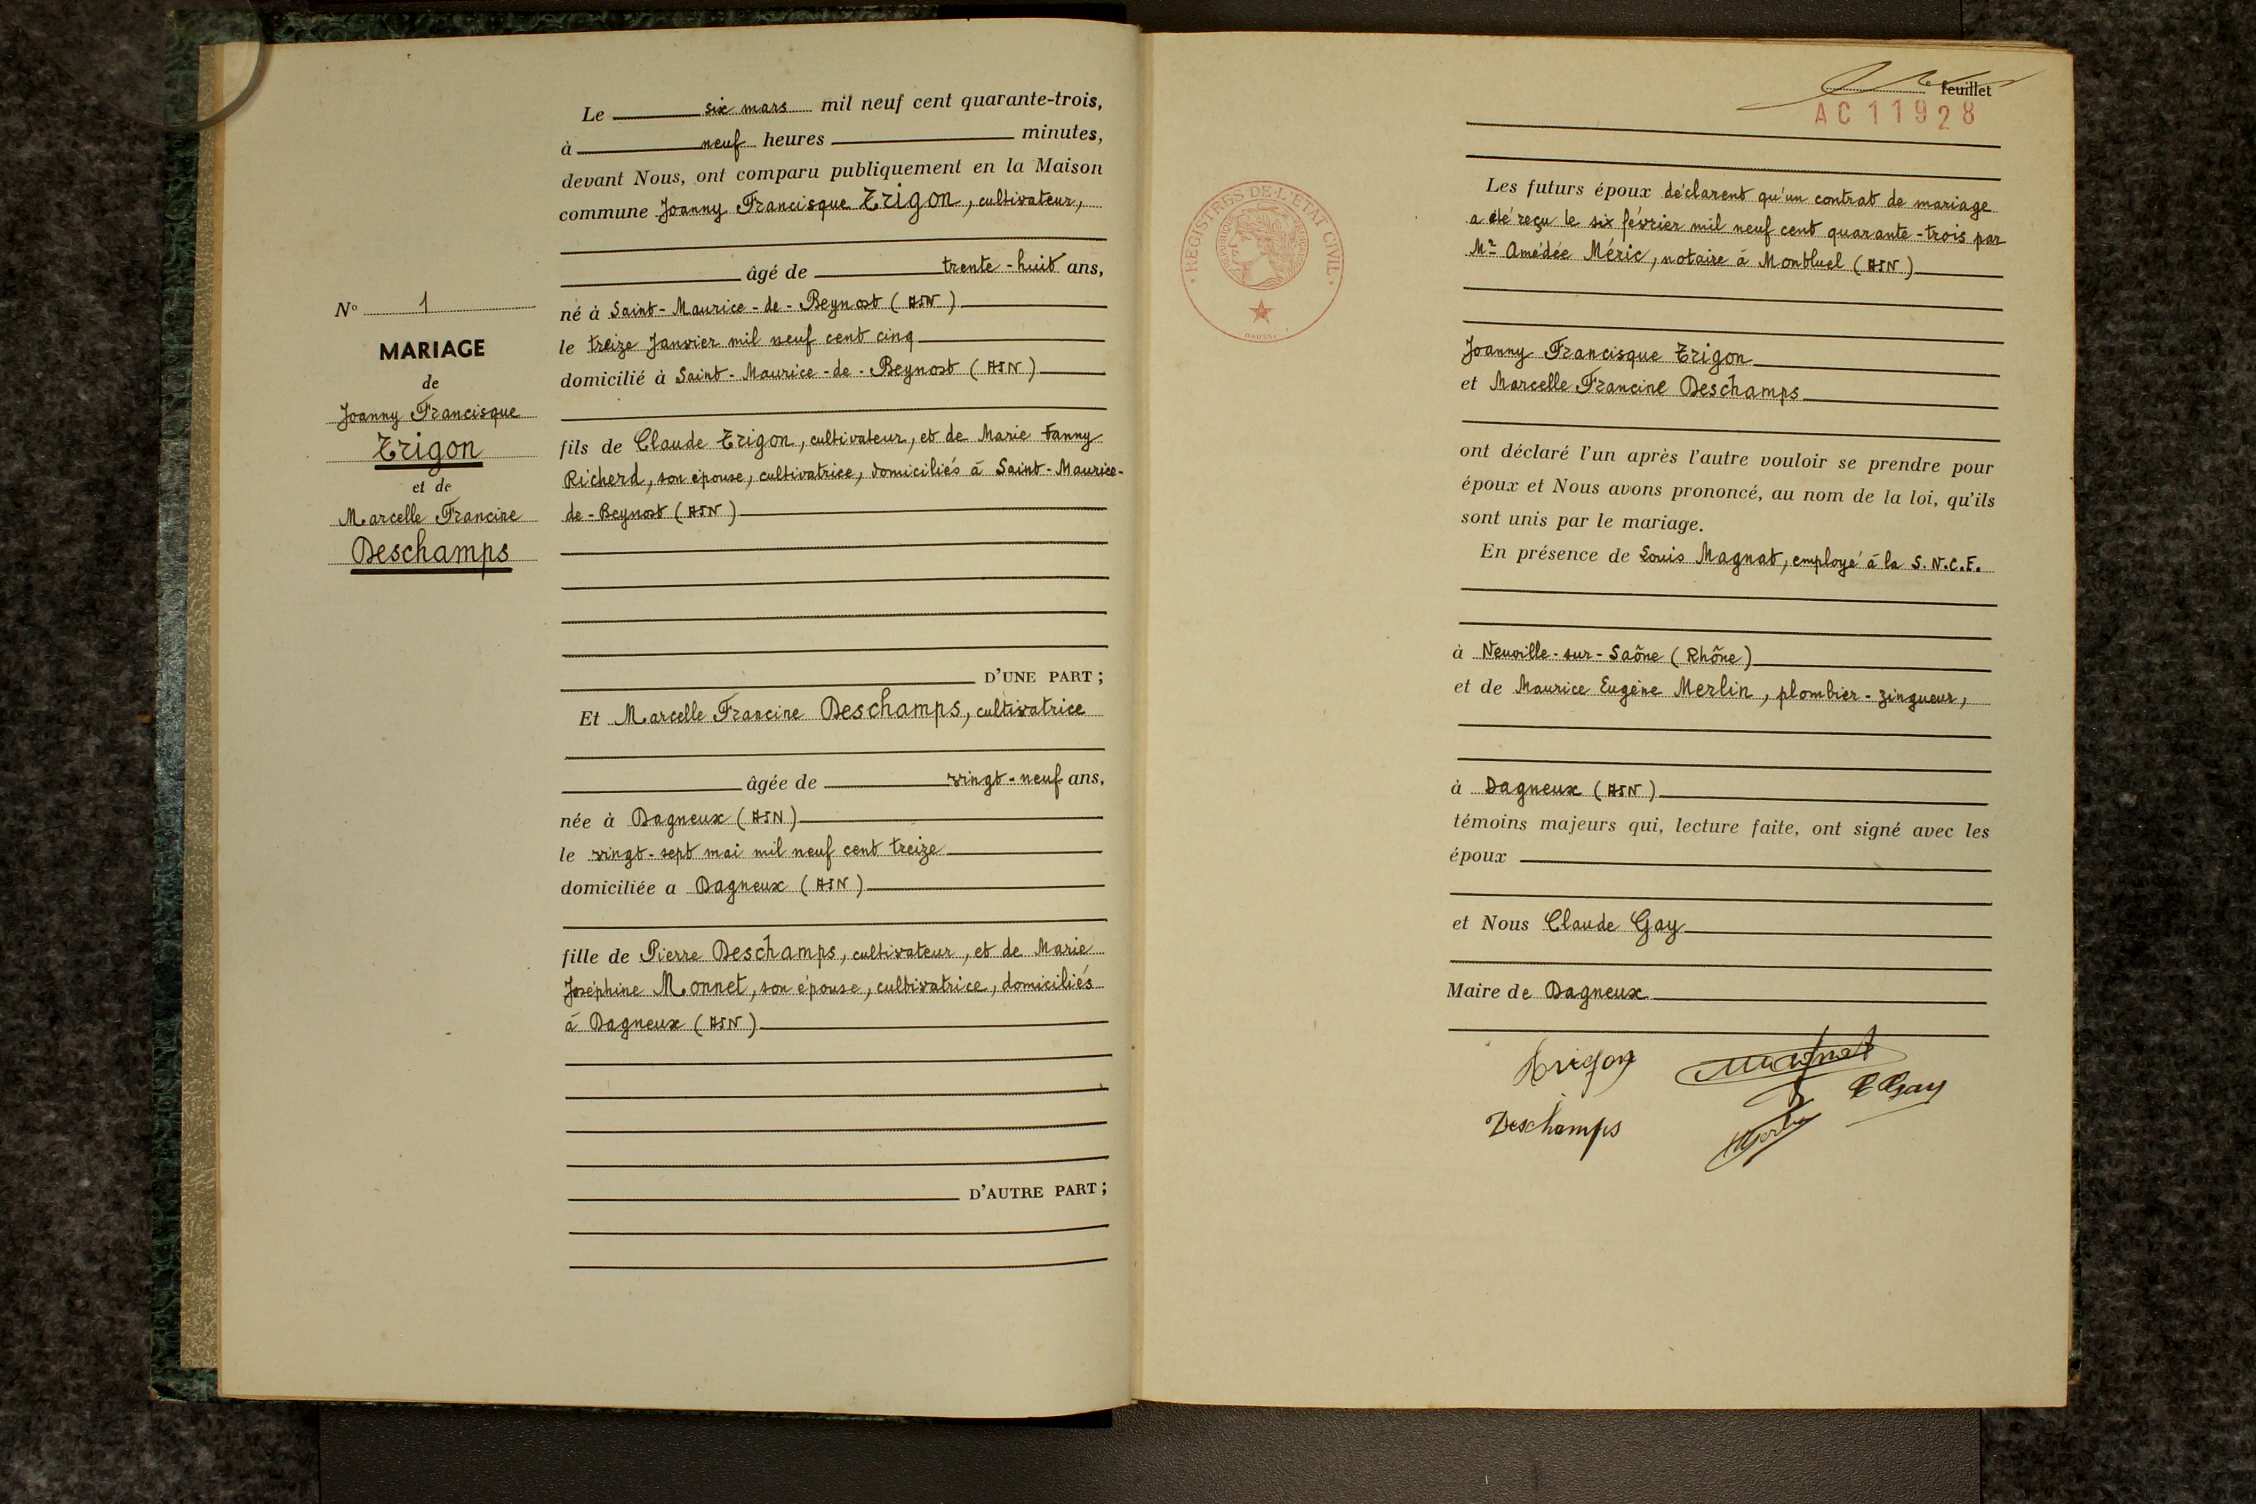 N° 1
MARIAGE
de
Joanny Francisque
Trigon
et de
Marcelle Francine
Deschamps
Le six mars mil neuf cent quarante-trois,
à neuf heures minutes,
devant Nous, ont comparu publiquement en la Maison
commune Joanny Francisque Trigon, cultivateur,
âgé de trente-huit ans,
né à Saint-Maurice-de-Beynost (AIN)
le treize Janvier mil neuf cent cinq
domicilié à Saint-Maurice-de-Beynost (AIN)
fils de Claude Trigon, cultivateur, et de Marie Fanny
Richerd, son épouse, cultivatrice, domiciliés à Saint-Maurice-
de-Beynost (AIN)
D'UNE PART;
Et Marcelle Francine Deschamps, cultivatrice
âgée de vingt-neuf ans,
née à Dagneux (AIN)
le vingt-sept mai mil neuf cent treize
domiciliée a Dagneux (AIN)
fille de Pierre Deschamps, cultivateur, et de Marie
Joséphine Monnet, son épouse, cultivatrice, domiciliés
à Dagneux (AIN)
D'AUTRE PART;
feuillet
AC 11928
REGISTRES DE L'ETAT CIVIL
Les futurs époux déclarent qu'un contrat de mariage
a été reçu le six février mil neuf cent quarante-trois par
Mr Amédée Méric, notaire à Montluel (AIN)
Joanny Francisque Trigon
et Marcelle Francine Deschamps
ont déclaré l'un après l'autre vouloir se prendre pour
époux et Nous avons prononcé, au nom de la loi, qu'ils
sont unis par le mariage.
En présence de Louis Magnat, employé à la S.N.C.F.
à Neuville-sur-Saône (Rhône)
et de Maurice Eugène Merlin, plombier-zingueur,
à Dagneux (AIN)
témoins majeurs qui, lecture faite, ont signé avec les
époux
et Nous Claude Gay
Maire de Dagneux
Trigon
Magnat
C Gay
Deschamps
Merlin